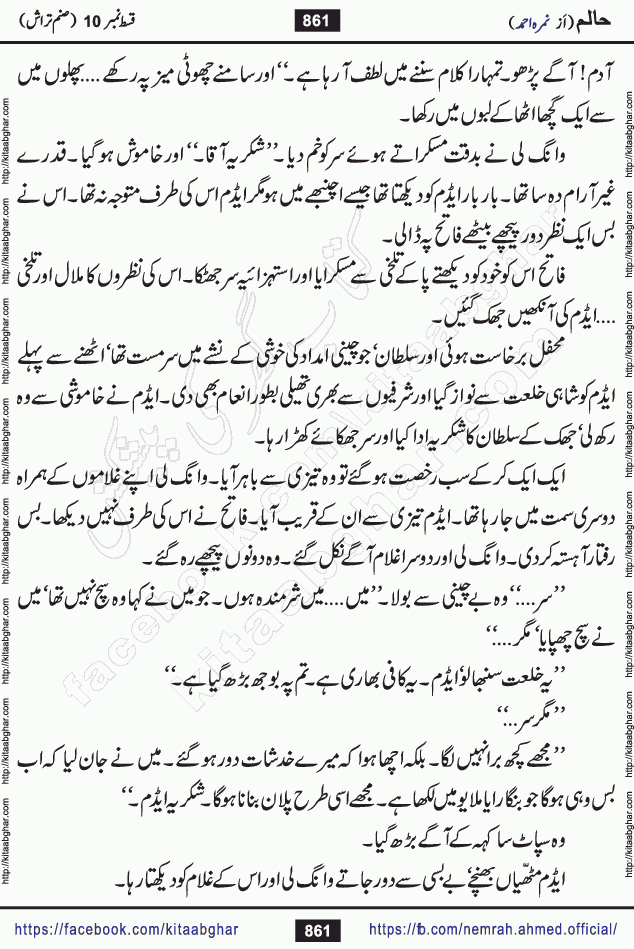 حالم (از نمرہ احمد)
861
قسط نمبر 10 (صنم تراش)
آدم! آگے پڑھو۔ تمہارا کلام سننے میں لطف آ رہا ہے۔‘‘ اور سامنے چھوٹی میز پہ رکھے .... پھلوں میں
سے ایک گچھا اٹھا کے لبوں میں رکھا۔
وانگ لی نے بدقت مسکراتے ہوئے سر کو خم دیا۔ ’’شکریہ آقا۔‘‘ اور خاموش ہو گیا۔ قدرے
غیر آرام دہ سا تھا۔ بار بار ایڈم کو دیکھتا تھا جیسے اچنبھے میں ہو مگر ایڈم اس کی طرف متوجہ نہ تھا۔ اس نے
بس ایک نظر دور پیچھے بیٹھے فاتح پہ ڈالی۔
فاتح اس کو خود کو دیکھتے پا کے تلخی سے مسکرایا اور استہزائیہ سر جھٹکا۔ اس کی نظروں کا ملال اور تلخی
.... ایڈم کی آنکھیں جھک گئیں۔
محفل برخاست ہوئی اور سلطان‘ جو چینی امداد کی خوشی کے نشے میں سرمست تھا‘ اٹھنے سے پہلے
ایڈم کو شاہی خلعت سے نواز گیا اور اشرفیوں سے بھری تھیلی بطور انعام بھی دی۔ ایڈم نے خاموشی سے وہ
رکھ لی‘ جھک کے سلطان کا شکریہ ادا کیا اور سر جھکائے کھڑا رہا۔
ایک ایک کر کے سب رخصت ہو گئے تو وہ تیزی سے باہر آیا۔ وانگ لی اپنے غلاموں کے ہمراہ
دوسری سمت میں جا رہا تھا۔ ایڈم تیزی سے ان کے قریب آیا۔ فاتح نے اس کی طرف نہیں دیکھا۔ بس
رفتار آہستہ کر دی۔ وانگ لی اور دوسرا غلام آگے نکل گئے۔ وہ دونوں پیچھے رہ گئے۔
’’سر....‘‘ وہ بے چینی سے بولا۔ ’’میں .... میں شرمندہ ہوں۔ جو میں نے کہا وہ سچ نہیں تھا‘ میں
نے سچ چھپایا‘ مگر....‘‘
’’یہ خلعت سنبھالو‘ ایڈم۔ یہ کافی بھاری ہے۔ تم پہ بوجھ بڑھ گیا ہے۔‘‘
’’مگر سر....‘‘
’’مجھے کچھ برا نہیں لگا۔ بلکہ اچھا ہوا کہ میرے خدشات دور ہو گئے۔ میں نے جان لیا کہ اب
بس وہی ہوگا جو بنگارایا ملایو میں لکھا ہے۔ مجھے اسی طرح پلان بنانا ہوگا۔ شکریہ ایڈم۔‘‘
وہ سپاٹ سا کہہ کے آگے بڑھ گیا۔
ایڈم مٹھیاں بھینچے‘ بے بسی سے دور جاتے وانگ لی اور اس کے غلام کو دیکھتا رہا۔
https://facebook.com/kitaabghar
861
https://fb.com/nemrah.ahmed.official/
http://kitaabghar.com http://kitaabghar.com http://kitaabghar.com http://kitaabghar.com http://kitaabghar.com http://kitaabghar.com http://kitaabghar.com http://kitaabghar.com
http://kitaabghar.com http://kitaabghar.com http://kitaabghar.com http://kitaabghar.com http://kitaabghar.com http://kitaabghar.com http://kitaabghar.com http://kitaabghar.com
facebook.com/kitaabghar
kitaabghar.com